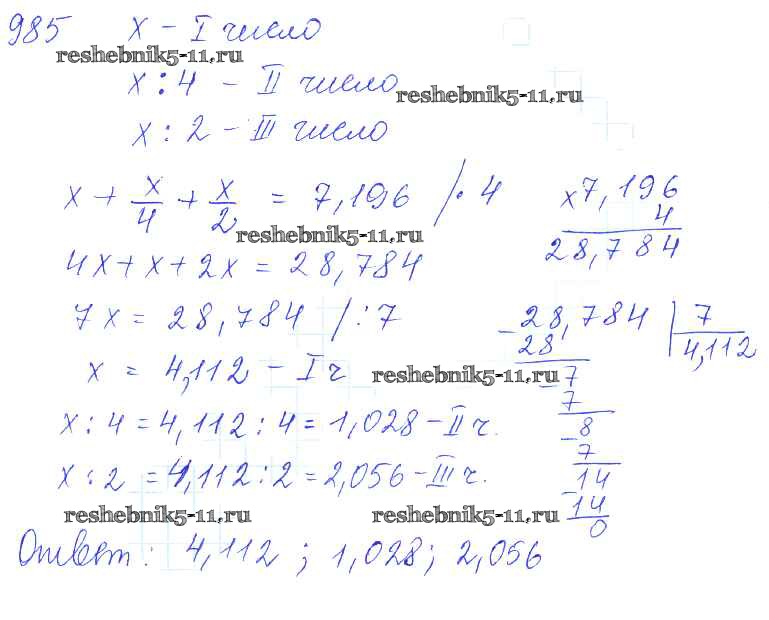 985 x – I число
reshebnik5-11.ru
x : 4 – II число
reshebnik5-11.ru
x : 2 – III число
x + x/4 + x/2 = 7,196 /· 4
reshebnik5-11.ru
4x + x + 2x = 28,784
7x = 28,784 /: 7
x = 4,112 – I ч
reshebnik5-11.ru
x : 4 = 4,112 : 4 = 1,028 – II ч.
x : 2 = 4,112 : 2 = 2,056 – III ч.
reshebnik5-11.ru
reshebnik5-11.ru
Ответ: 4,112 ; 1,028; 2,056
x 7,196
4
28,784
- 28,784 | 7
28 4,112
- 7
7
- 8
7
- 14
14
0